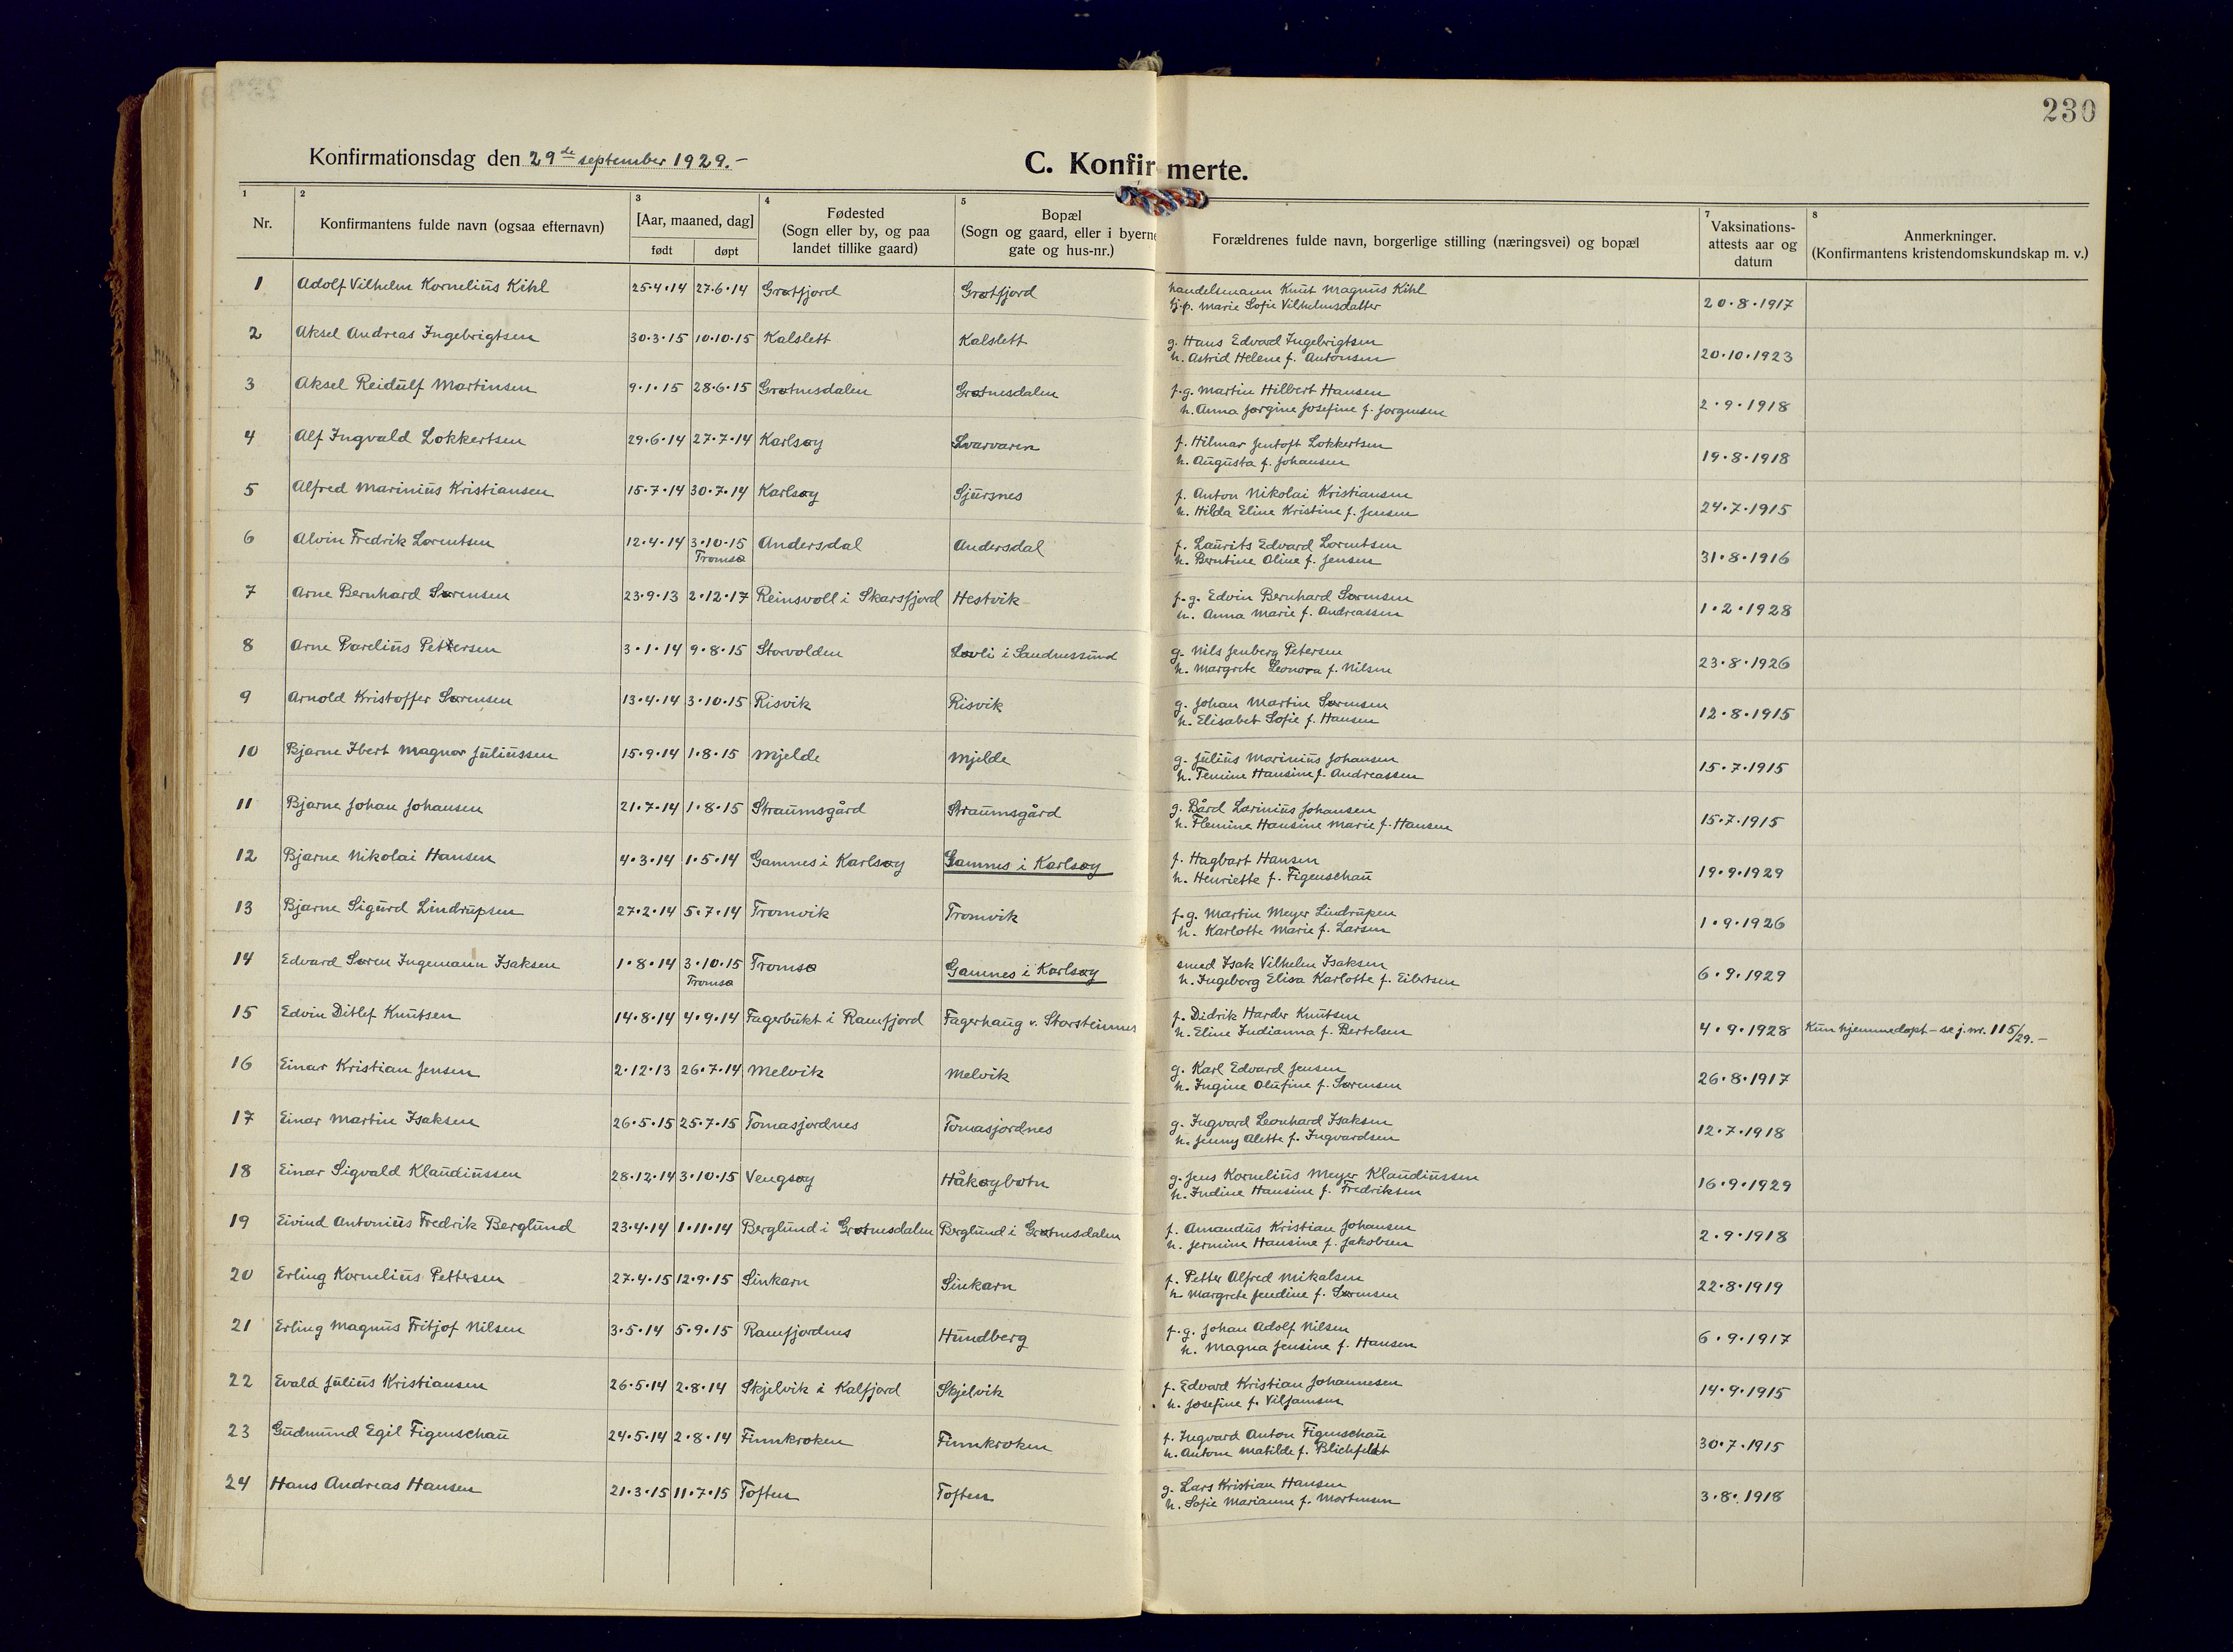 230
Konfirmationsdag den 29de september 1929.-
C. Konfirmerte.
1 2 3 4 5 7 8
Nr. Konfirmantens fulde navn (ogsaa efternavn) [Aar, maaned, dag] født døpt Fødested (Sogn eller by, og paa landet tillike gaard) Bopæl (Sogn og gaard, eller i byerne gate og hus-nr.) Forældrenes fulde navn, borgerlige stilling (næringsvei) og bopæl Vaksinations-attests aar og datum Anmerkninger. (Konfirmantens kristendomskundskap m. v.)
1 Adolf Vilhelm Kornelius Kihl 25.4.14 27.6.14 Grøtfjord Grøtfjord handelsmann Knut Magnus Kihl 20.8.1917
hj.p. Marie Sofie Vilhelmsdatter
2 Aksel Andreas Ingebrigtsen 30.3.15 10.10.15 Kalslett Kalslett g. Hans Edvard Ingebrigtsen 20.10.1923
h. Astrid Helene f. Antonsen
3 Aksel Reidulf Martinsen 9.1.15 28.6.15 Grøtnesdalen Grøtnesdalen f.g. Martin Hilbert Hansen 2.9.1918
h. Anna Jørgine Josefine f. Jørgensen
4 Alf Ingvald Lokkertsen 29.6.14 27.7.14 Karlsøy Svarvaren f. Hilmar Jentoft Lokkertsen 19.8.1918
h. Augusta f. Johansen
5 Alfred Marinius Kristiansen 15.7.14 30.7.14 Karlsøy Sjursnes f. Anton Nikolai Kristiansen 24.7.1915
h. Hilda Eline Kristine f. Jensen
6 Alvin Fredrik Lorentsen 12.4.14 3.10.15 Tromsø Andersdal Andersdal f. Laurits Edvard Lorentsen 31.8.1916
h. Berntine Oline f. Jensen
7 Arne Bernhard Sørensen 23.9.13 2.12.17 Reinsvoll i Skarsfjord Hestvik f.g. Edvin Bernhard Sørensen 1.2.1928
h. Anna Marie f. Andreassen
8 Arne Parelius Pettersen 3.1.14 9.8.15 Storvolden Løvli i Sandnessund g. Nils Jenberg Petersen 23.8.1926
h. Margrete Leonora f. Nilsen
9 Arnold Kristoffer Sørensen 13.4.14 3.10.15 Risvik Risvik g. Johan Martin Sørensen 12.8.1915
h. Elisabet Sofie f. Hansen
10 Bjarne Ibert Magnor Juliussen 15.9.14 1.8.15 Mjelde Mjelde g. Julius Marinius Johansen 15.7.1915
h. Temine Hansine f. Andreassen
11 Bjarne Johan Johansen 21.7.14 1.8.15 Straumsgård Straumsgård g. Bård Lorinius Johansen 15.7.1915
h. Flemine Hansine Marie f. Hansen
12 Bjarne Nikolai Hansen 4.3.14 1.5.14 Gamnes i Karlsøy Gamnes i Karlsøy f. Hagbart Hansen 19.9.1929
h. Henriette f. Figenschau
13 Bjarne Sigurd Lindrupsen 27.2.14 5.7.14 Tromvik Tromvik f.g. Martin Meyer Lindrupsen 1.9.1926
h. Karlotte Marie f. Larsen
14 Edvard Søren Ingemann Isaksen 1.8.14 3.10.15 Tromsø Tromsø Gamnes i Karlsøy smed Isak Vilhelm Isaksen 6.9.1929
h. Ingeborg Elisa Karlotte f. Eibrtsen
15 Edvin Ditlef Knutsen 14.8.14 4.9.14 Fagerbukt i Ramfjord Fagerhaug v. Storsteinnes f. Didrik Harder Knutsen 4.9.1928 Kun hjemmedøpt - se j.nr. 115/29.-
h. Eline Indianna f. Bertelsen
16 Einar Kristian Jensen 2.12.13 26.7.14 Melvik Melvik g. Karl Edvard Jensen 26.8.1917
h. Ingine Olufine f. Sørensen
17 Einar Martin Isaksen 26.5.15 25.7.15 Tomasjordnes Tomasjordnes g. Ingvard Leonhard Isaksen 12.7.1918
h. Jenny Alette f. Ingvardsen
18 Einar Sigvald Klaudiussen 28.12.14 3.10.15 Vengsøy Håkøybotn g. Jens Kornelius Meyer Klaudiussen 16.9.1929
h. Indine Hansine f. Fredriksen
19 Eivind Antonius Fredrik Berglund 23.4.14 1.11.14 Berglund i Grøtnesdalen Berglund i Grøtnesdalen f. Amandus Kristian Johansen 2.9.1918
h. Jermine Hansine f. Jakobsen
20 Erling Kornelius Pettersen 27.4.15 12.9.15 Sinkarn Sinkarn f. Petter Alfred Mikalsen 22.8.1919
h. Margrete Jendine f. Sørensen
21 Erling Magnus Fritjof Nilsen 3.5.14 5.9.15 Ramfjordnes Hundberg f.g. Johan Adolf Nilsen 6.9.1917
h. Magna Jensine f. Hansen
22 Evald Julius Kristiansen 26.5.14 2.8.14 Skjelvik i Kalfjord Skjelvik f. Edvard Kristian Johannesen 14.9.1915
h. Josefine f. Viljamsen
23 Gudmund Egil Figenschau 24.5.14 2.8.14 Finnkroken Finnkroken f. Ingvard Anton Figenschau 30.7.1915
h. Antone Matilde f. Blichfeldt
24 Hans Andreas Hansen 21.3.15 11.7.15 Toften Toften g. Lars Kristian Hansen 3.8.1918
h. Sofie Marianne f. Mortensen